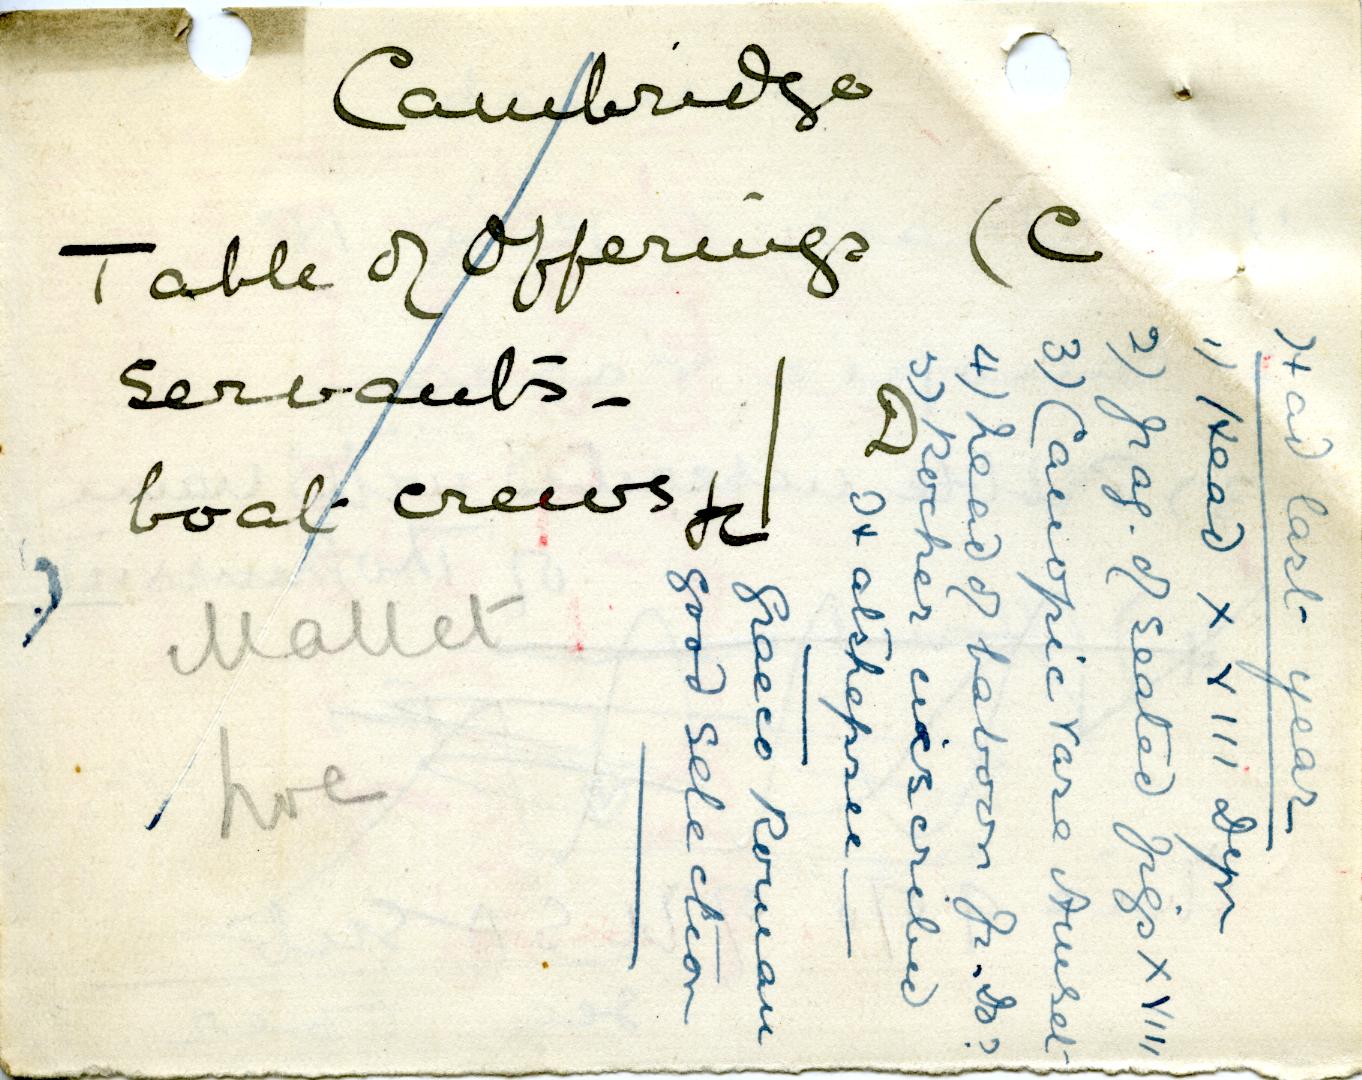 Cambridge
Table of Offerings (C
servants -
boat crews &c
Mallet
hoe
Had last year
1) Head XVIII Dyn
2) frag. of seated figs XVIII
3) Canopic Vase Amset
4) head of baboon fr. Do?
5) Rocher inscribed
D
Dt alshepse
Graeco Roman
good selection